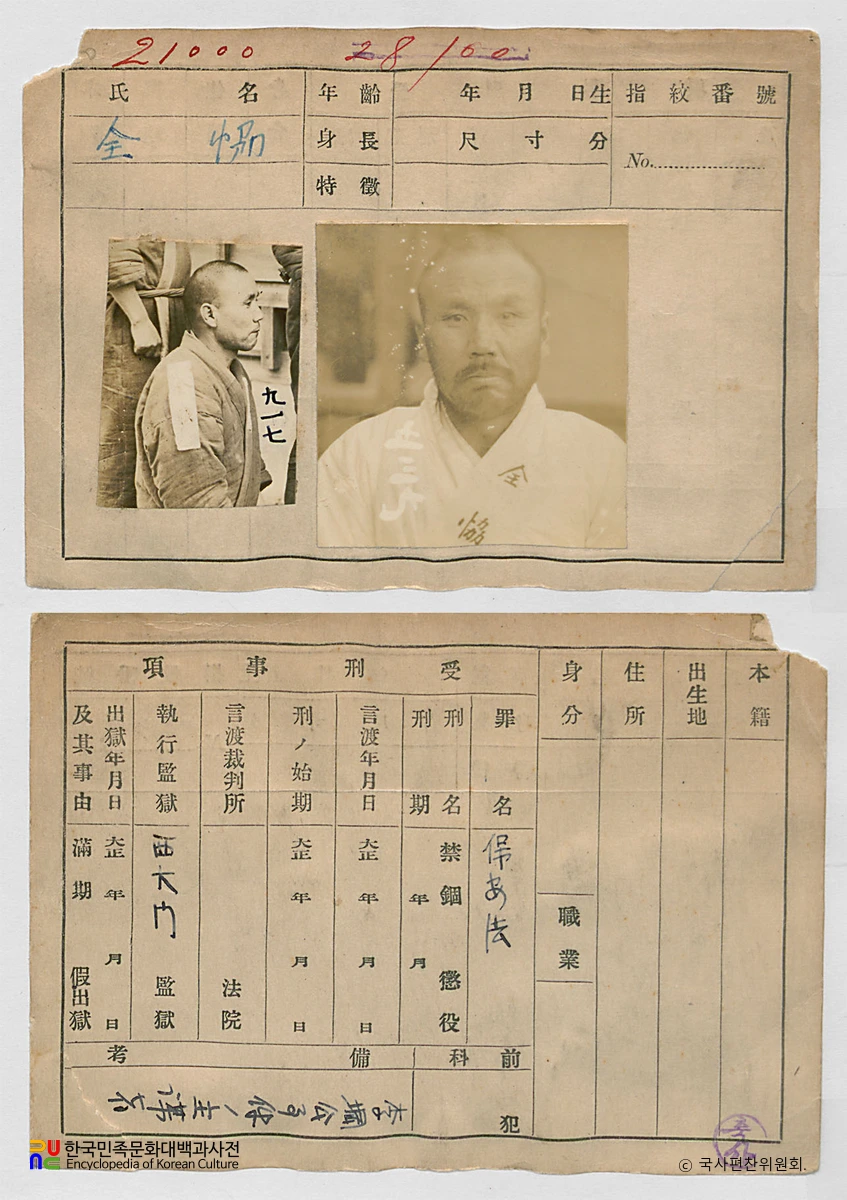 21000 28100
氏名
年齡
年 月 日生
指紋番號
全 恊
身長
尺 寸 分
No.
特徵
九一七
五三九
全 恊
本籍
出生地
住所
身分
職業
受刑事項
罪名 保安法
刑名 禁錮 懲役
刑期 年 月
言渡年月日 大正 年 月 日
刑ノ始期 大正 年 月 日
言渡裁判所 法院
執行監獄 西大門 監獄
出獄年月日 大正 年 月 日
及其事由 滿期 假出獄
前科
犯
備考
李堈公事件ノ主謀者
한국민족문화대백과사전
Encyclopedia of Korean Culture
© 국사편찬위원회.